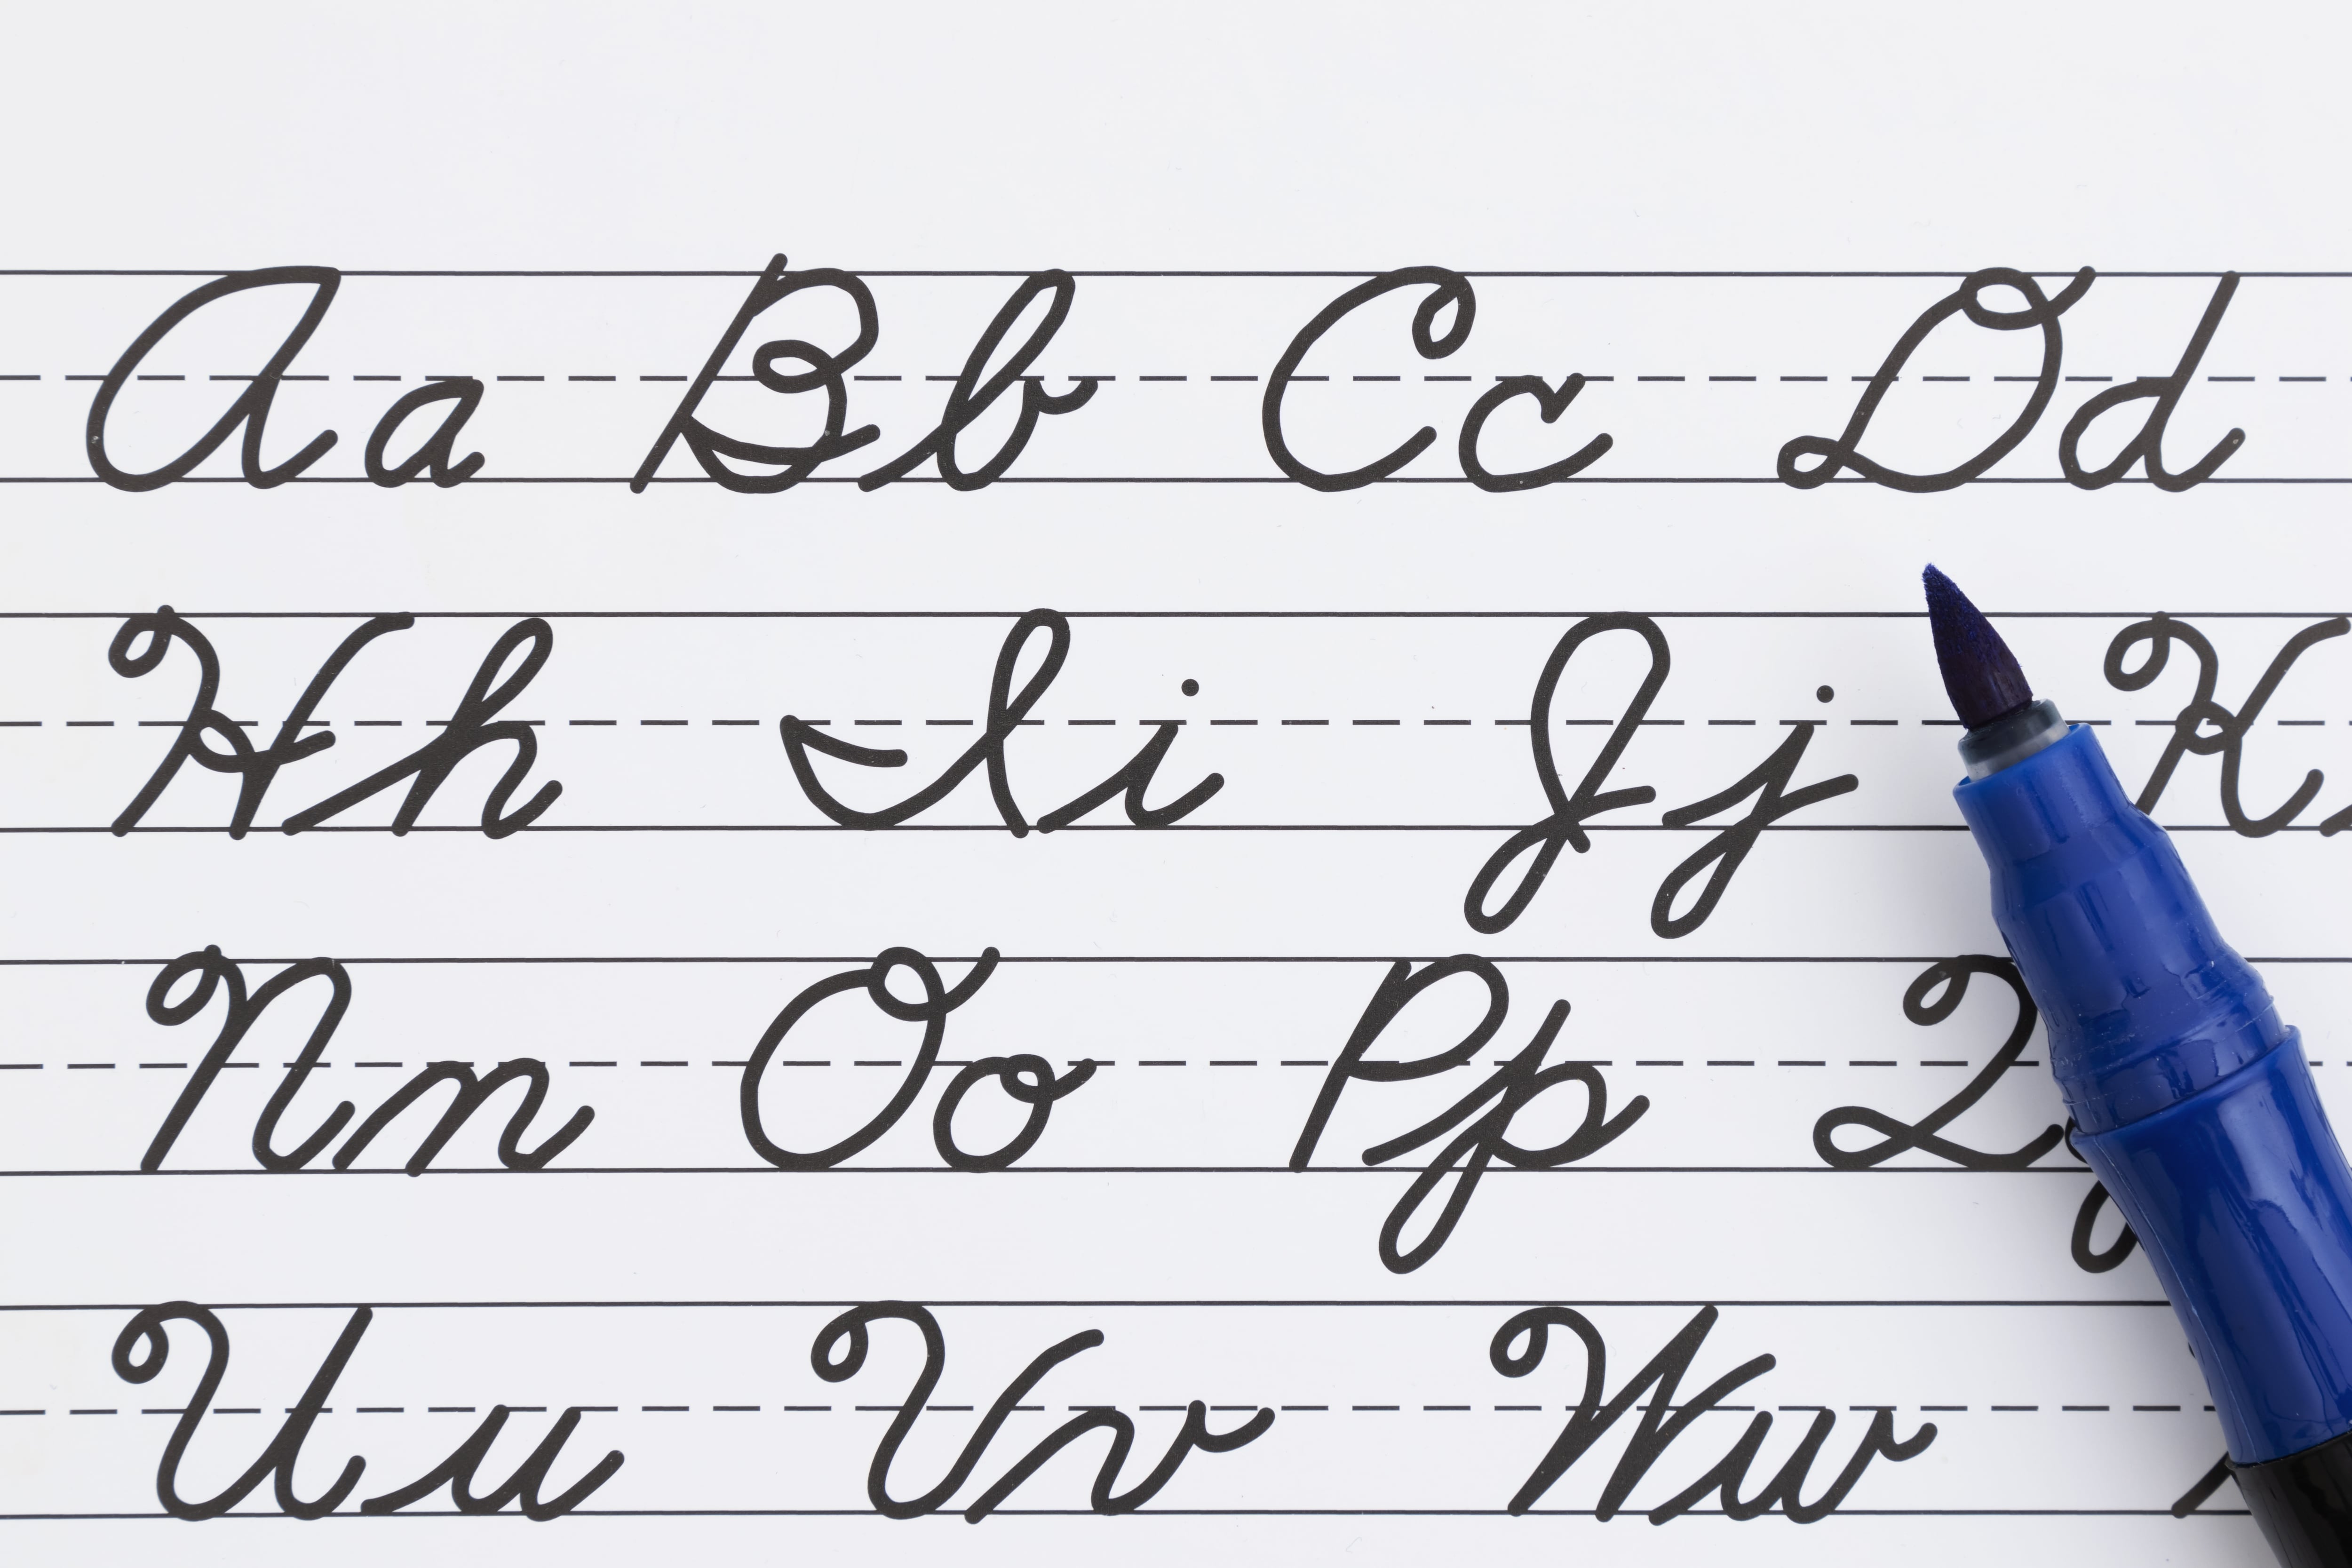 Aa Bb Cc Dd
Hh Ii Jj K
Nn Oo Pp Q
Uu Vv Ww